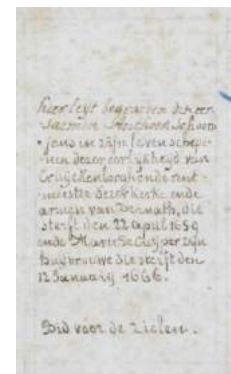 hier leyt begraven den eer
Jasmine
Jans in zijn leven schepe-
nen deser eerlijkheyd van
Cruyckenborgh ende rent
meester dezer kerke ende
armen van Ternath, die
sterft den 22 april 1659
ende Marie de Cuyper zijn
huysvrouwe die sterft den
12 January 1666.
Bid voor de zielen.